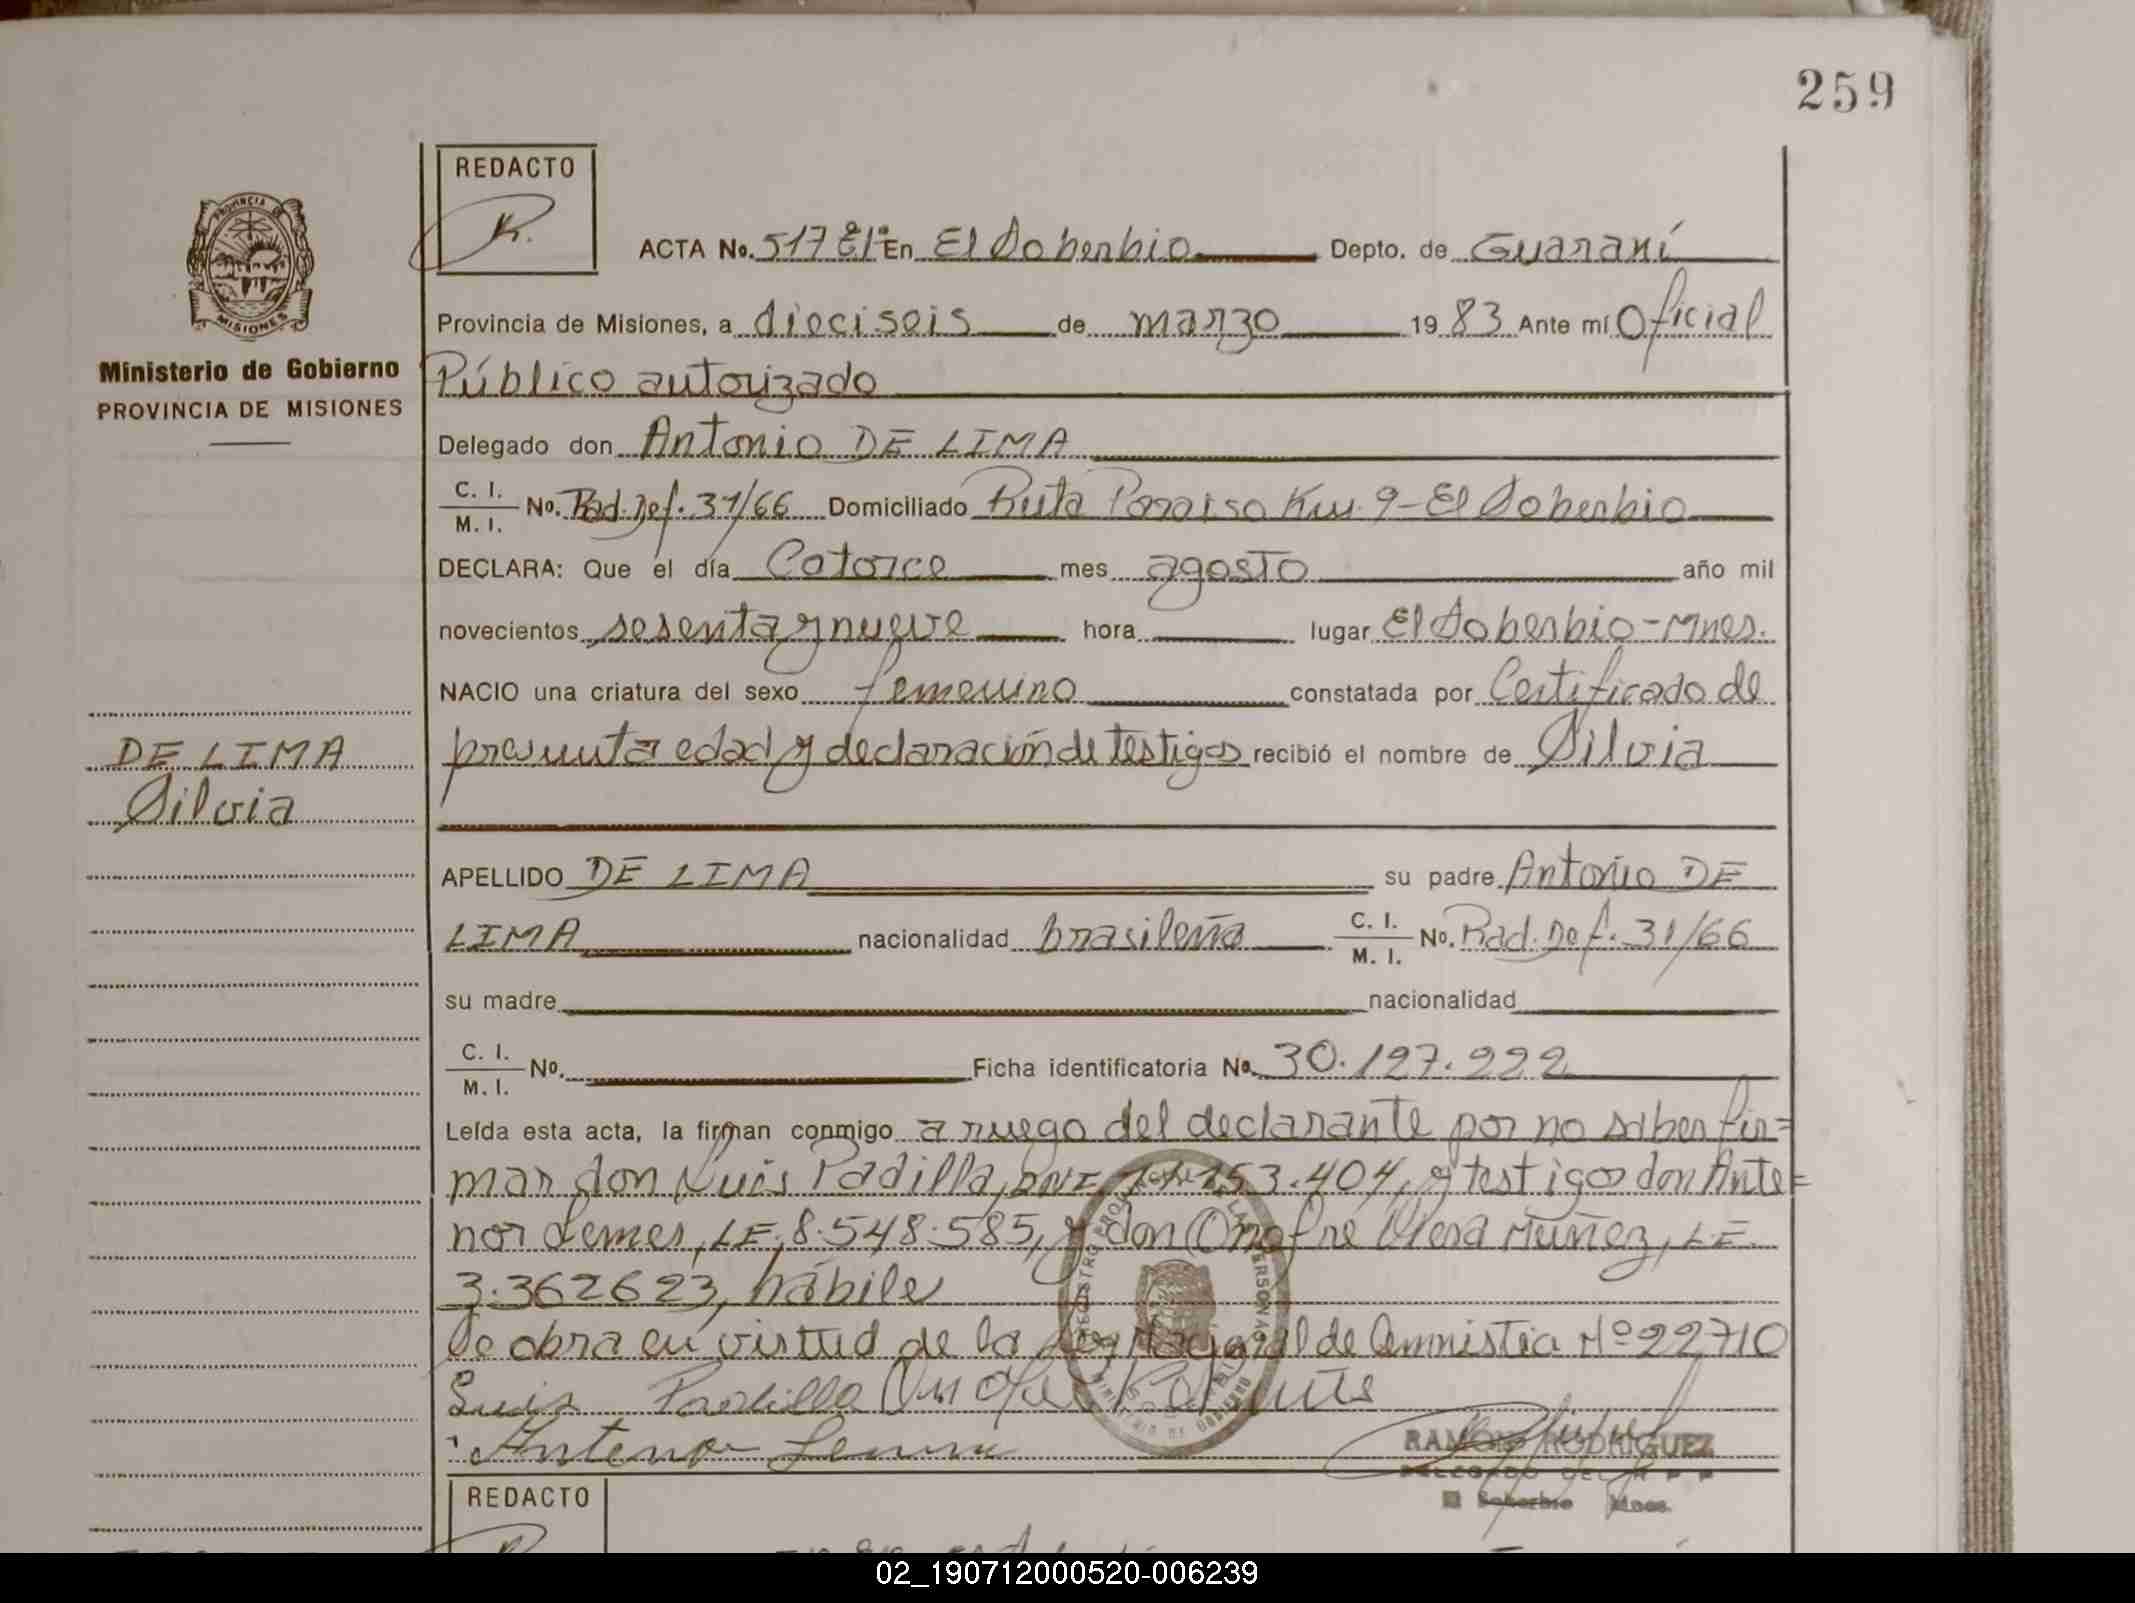 259
REDACTO
R.
PROVINCIA DE
MISIONES
Ministerio de Gobierno
PROVINCIA DE MISIONES
ACTA No. 517 En El Soberbio Depto. de Guaraní
Provincia de Misiones, a dieciseis de marzo 1983 Ante mí Oficial
Público autorizado
Delegado don Antonio DE LIMA
C. I. / M. I. No. Rad. Def. 31/66 Domiciliado Ruta Paraiso Km. 9-El Soberbio
DECLARA: Que el día Catorce mes agosto año mil
novecientos sesenta y nueve hora lugar El Soberbio-Mnes.
NACIO una criatura del sexo femenino constatada por Certificado de
presunta edad y declaración de testigos recibió el nombre de Silvia
DE LIMA
Silvia
APELLIDO DE LIMA su padre Antonio DE
LIMA nacionalidad brasileña C. I. / M. I. No. Rad. Def. 31/66
su madre nacionalidad
C. I. / M. I. No. Ficha identificatoria No. 30.127.222
Leída esta acta, la firman conmigo a ruego del declarante por no saber fir=
mar don Luis Padilla, DNI, 153.404, y testigos don Ante=
nor Lemes, LE, 8.548.585, y don Onofre Muñez, LE.
3.362623, hábiles
Se obra en virtud de la Ley Nacional de Amnistia Nº 22710
Luis Padilla
Antenor
RAMON RODRIGUEZ
DELEGADO DEL
El Soberbio Mnes.
REDACTO
02_190712000520-006239